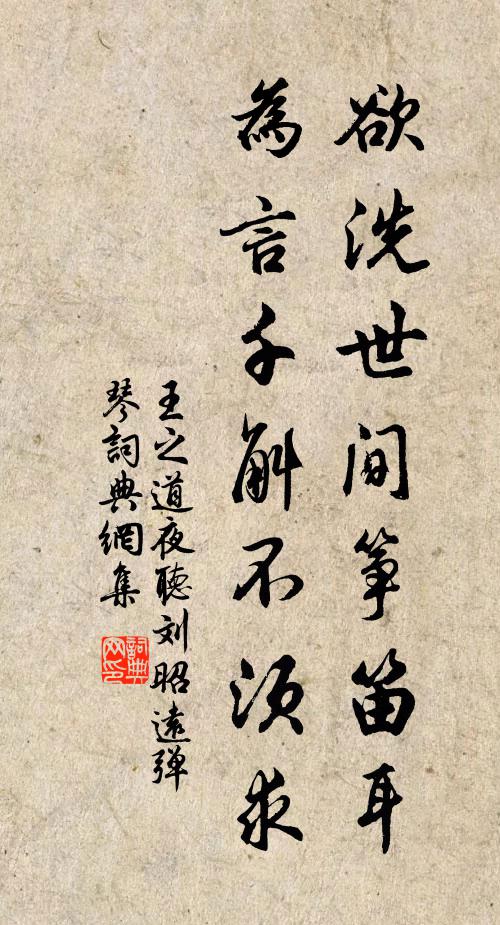 欲洗世间筝笛耳
為言千斛不須求
王之道夜聽刘昭遠弹
琴詞典網集
詞典
网印